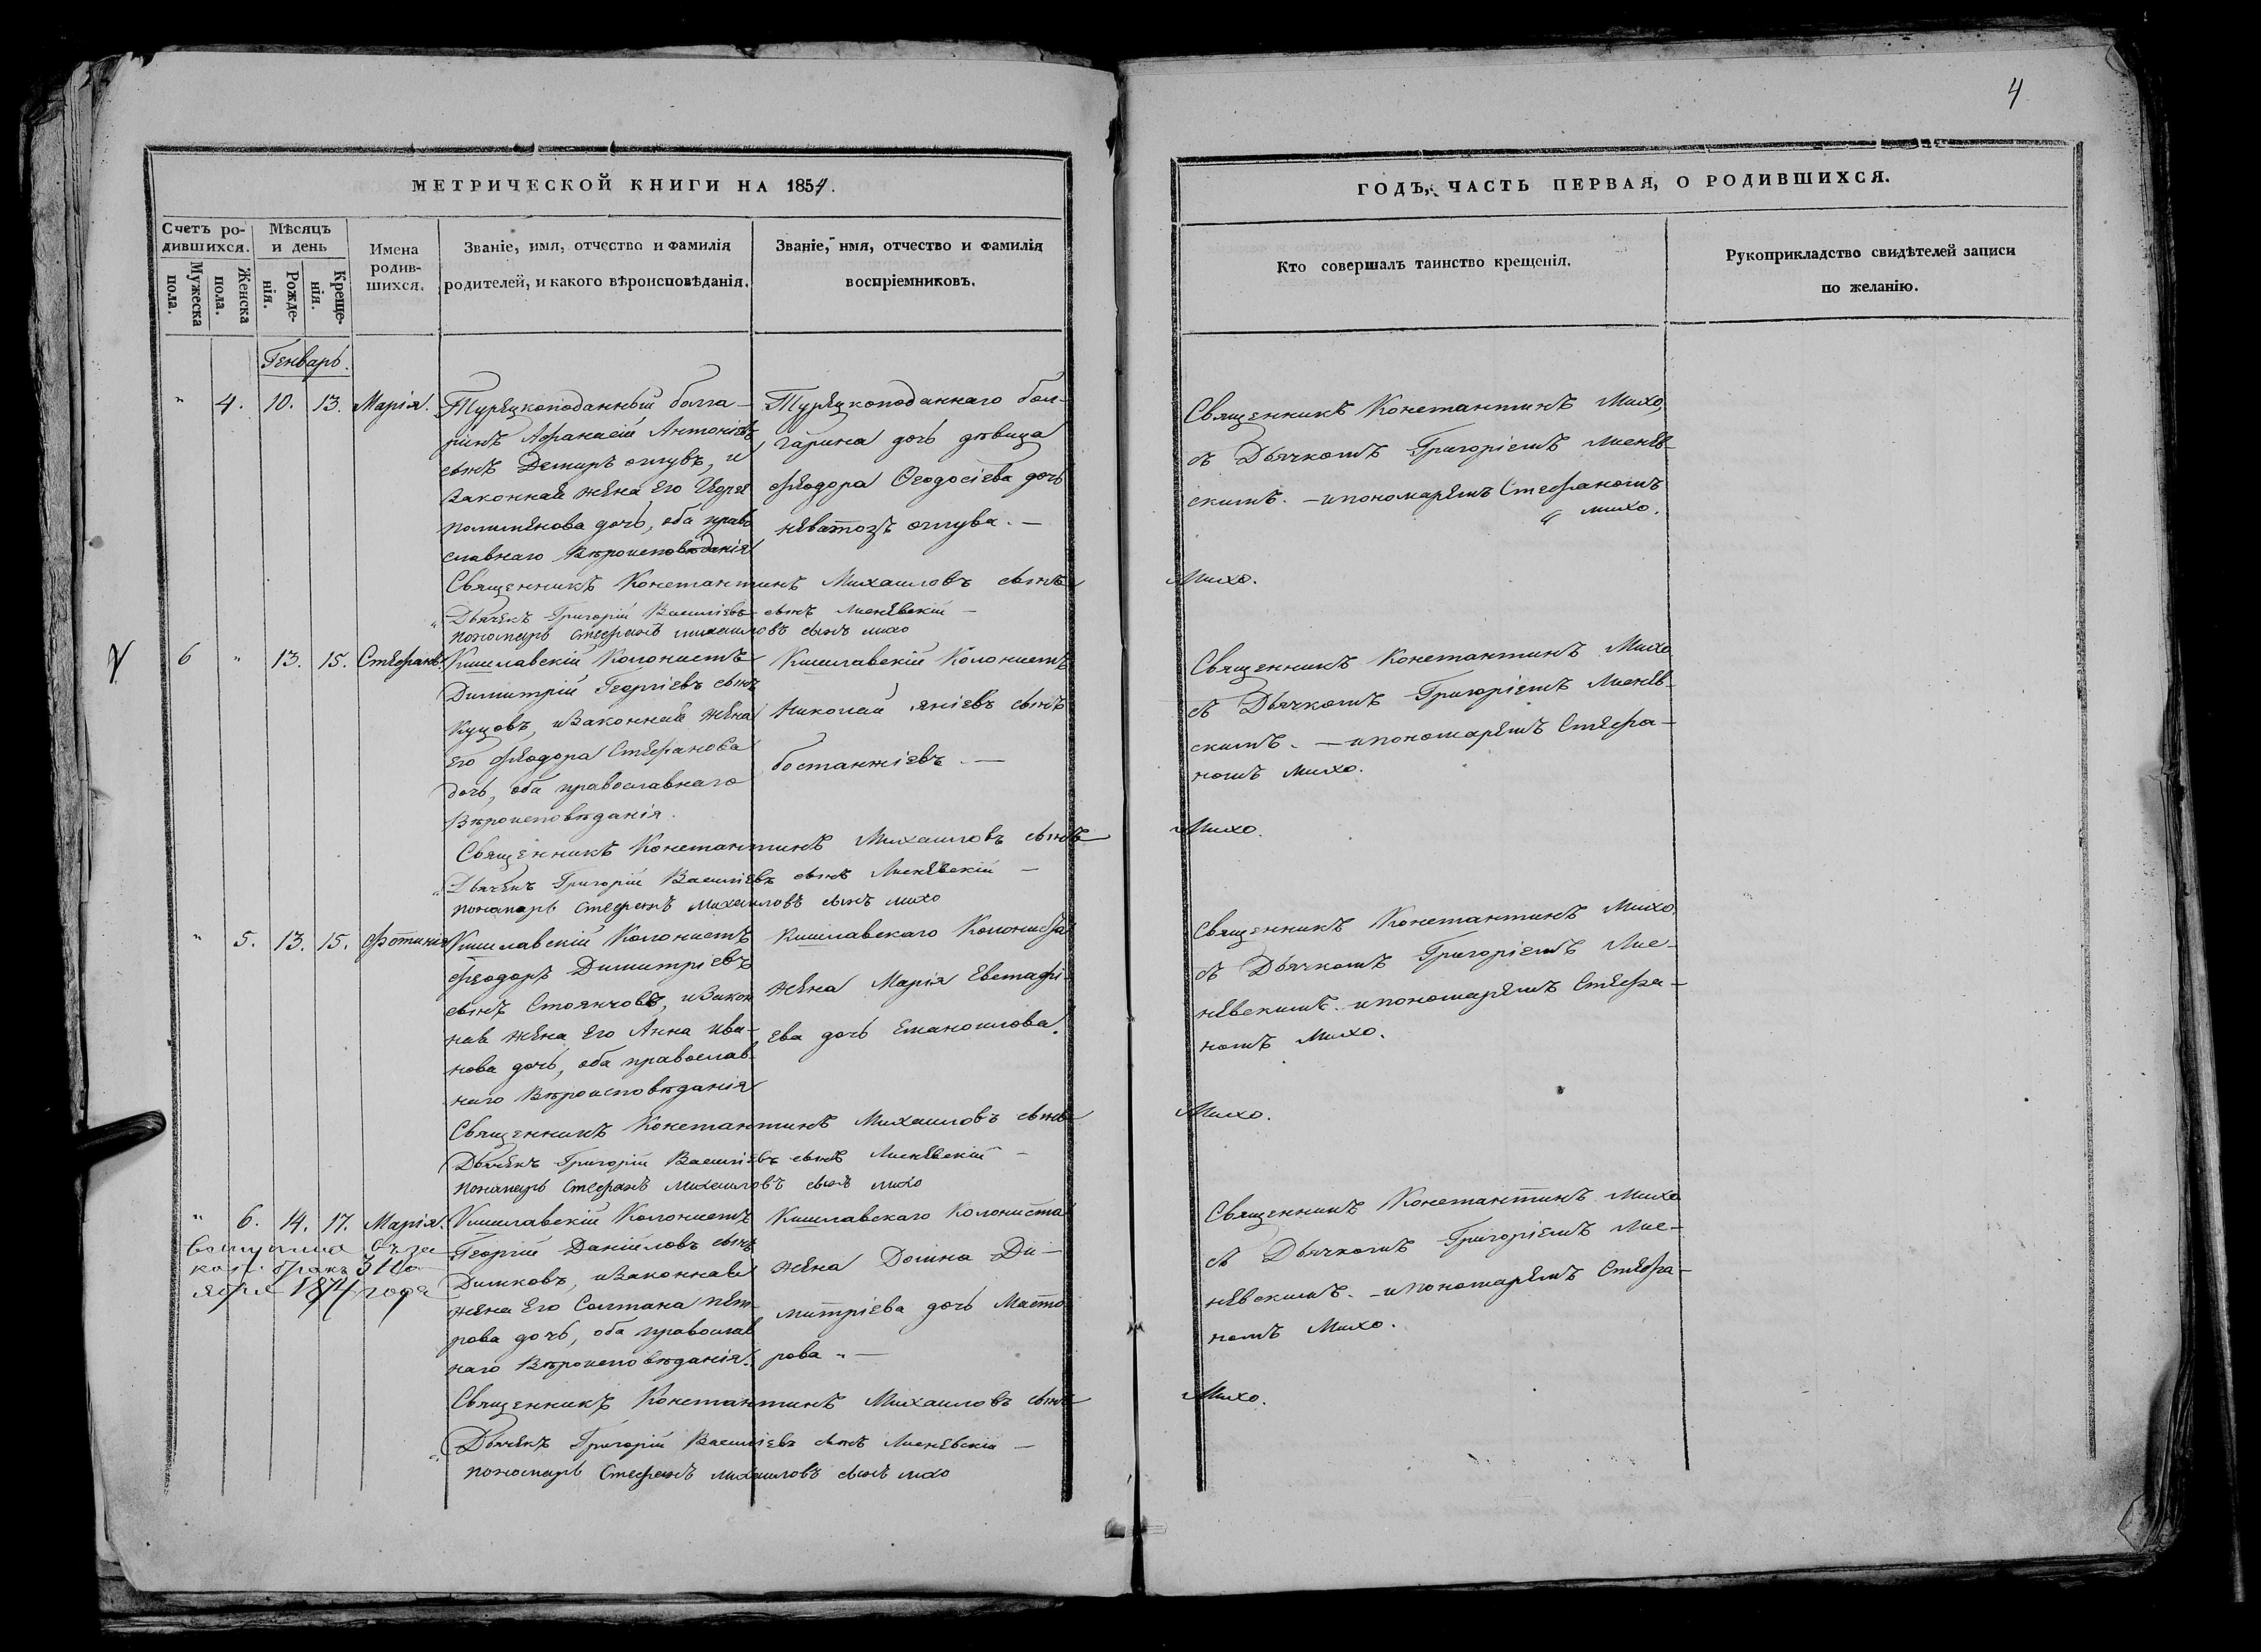 4
МЕТРИЧЕСКОЙ КНИГИ НА 1854.
Счетъ ро-
дившихся.
Мужеска
пола.
Женска
пола.
Мѣсяцъ
и день
Рожде-
нія.
Креще-
нія.
Имена
родив-
шихся.
Званіе, имя, отчество и фамилія
родителей, и какого вѣроисповѣданія.
Званіе, имя, отчество и фамилія
воспріемниковъ.
ГОДЪ, ЧАСТЬ ПЕРВАЯ, О РОДИВШИХСЯ.
Кто совершалъ таинство крещенія.
Рукоприкладство свидѣтелей записи
по желанію.
Генварь.
" 4. 10. 13. Марія.
Турецкоподанный болга-
ринъ Афанасій Антоніевъ
сынъ Демиръ оглувъ, и
законная жена его
дочь, оба право
славнаго вѣроисповѣданія
Турецкоподаннаго бол-
гарина дочь дѣвица
Феодора Ѳеодосіева дочь
оглува. —
Священникъ Константинъ Михо,
съ Дьячкомъ Григоріемъ Лисенѣв-
скимъ. — и пономаремъ Стефаномъ
Михо.
Священникъ Константинъ Михаиловъ сынъ Михо.
Дьячекъ Григорій Василіевъ сынъ Лисневскій —
пономарь Стефанъ Михаиловъ сынъ Михо
6 " 13. 15. Стефанъ.
Кишлавскій Колонистъ
Димитрій Георгіевъ сынъ
Куцовъ, и законная жена
его Феодора Стефанова
дочь, оба православнаго
вѣроисповѣданія.
Кишлавскій Колонистъ
Николай Яніевъ сынъ
бостанжіевъ. —
Священникъ Константинъ Михо
съ Дьячкомъ Григоріемъ Лиснев-
скимъ. — и пономаремъ Стефа-
номъ Михо.
Священникъ Константинъ Михаиловъ сынъ Михо.
Дьячекъ Григорій Василіевъ сынъ Лисневскій —
пономарь Стефанъ Михаиловъ сынъ Михо
" 5. 13. 15. Фотинія
Кишлавскій Колонистъ
Феодоръ Димитріевъ
сынъ Стоянчовъ, и закон
ная жена его Анна Ива-
нова дочь, оба православ-
наго вѣроисповѣданія
Кишлавскаго Колониста
жена Марія Евстафі-
ева дочь Емануилова.
Священникъ Константинъ Михо
съ Дьячкомъ Григоріемъ Лис-
невскимъ. и пономаремъ Стефа-
номъ Михо.
Священникъ Константинъ Михаиловъ сынъ Михо.
Дьячекъ Григорій Василіевъ сынъ Лисневскій —
пономарь Стефанъ Михаиловъ сынъ Михо
" 6. 14. 17. Марія.
вступила въ за
кон. бракъ 3 Но-
ября 1874 года
Кишлавскій Колонистъ
Георгій Даніиловъ сынъ
Димковъ, и законная
жена его Солтана Пет-
рова дочь, оба православ
наго вѣроисповѣданія.
Кишлавскаго Колониста
жена Домна Ди-
митріева дочь Масто-
рова. —
Священникъ Константинъ Михо
съ Дьячкомъ Григоріемъ Лис-
невскимъ. — и пономаремъ Стефа-
номъ Михо.
Священникъ Константинъ Михаиловъ сынъ Михо.
Дьячекъ Григорій Василіевъ сынъ Лисневскій —
пономарь Стефанъ Михаиловъ сынъ Михо